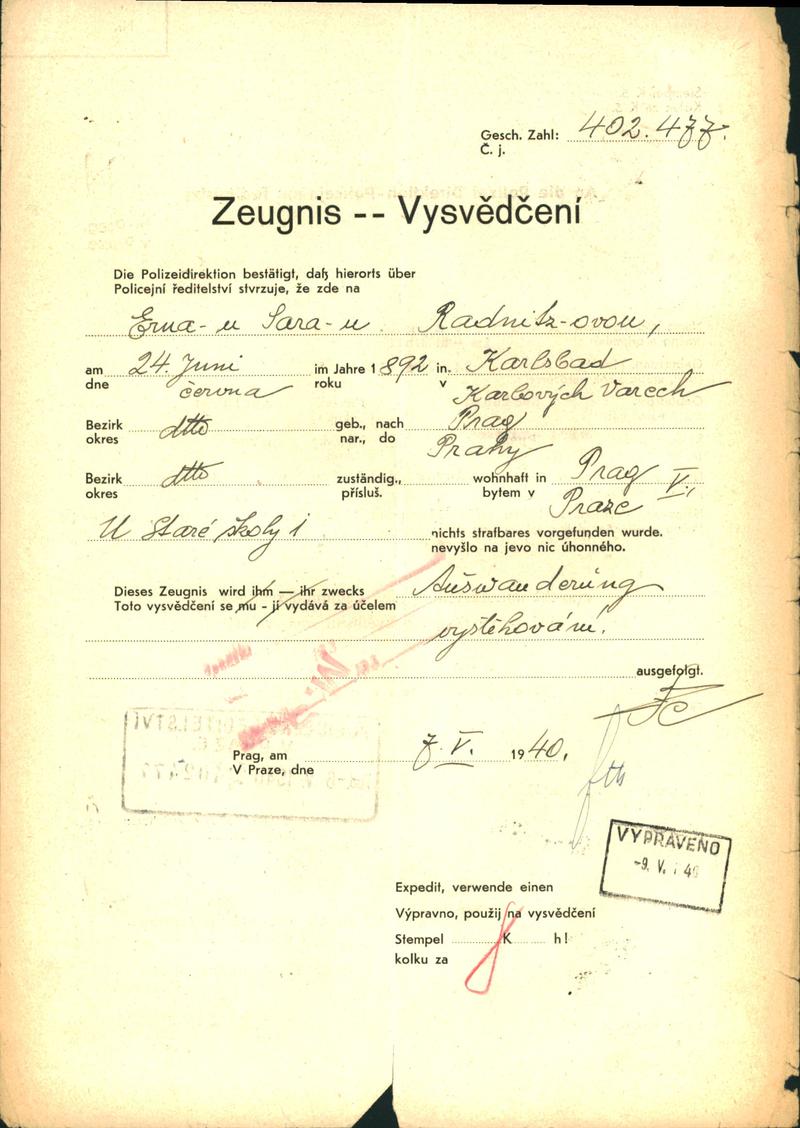 Gesch. Zahl: 402.477.
Č. j.
Zeugnis -- Vysvědčení
Die Polizeidirektion bestätigt, daß hierorts über
Policejní ředitelství stvrzuje, že zde na
Erna-u Sara-u Radnitz-ovou,
am 24. Juni im Jahre 1892 in Karlsbad
dne června roku v Karlových Varech
Bezirk dtto geb., nach Prag
okres nar., do Prahy
Bezirk dtto zuständig., wohnhaft in Prag V.,
okres přísluš. bytem v Praze
U Staré školy 1 nichts strafbares vorgefunden wurde.
nevyšlo na jevo nic úhonného.
Dieses Zeugnis wird ihm — ihr zwecks Auswanderung
Toto vysvědčení se mu - jí vydává za účelem
vystěhování.
ausgefolgt.
Prag, am 7. V. 1940.
V Praze, dne
VYPRAVENO
-9. V.
Expedit, verwende einen
Výpravno, použij na vysvědčení
Stempel K h!
kolku za